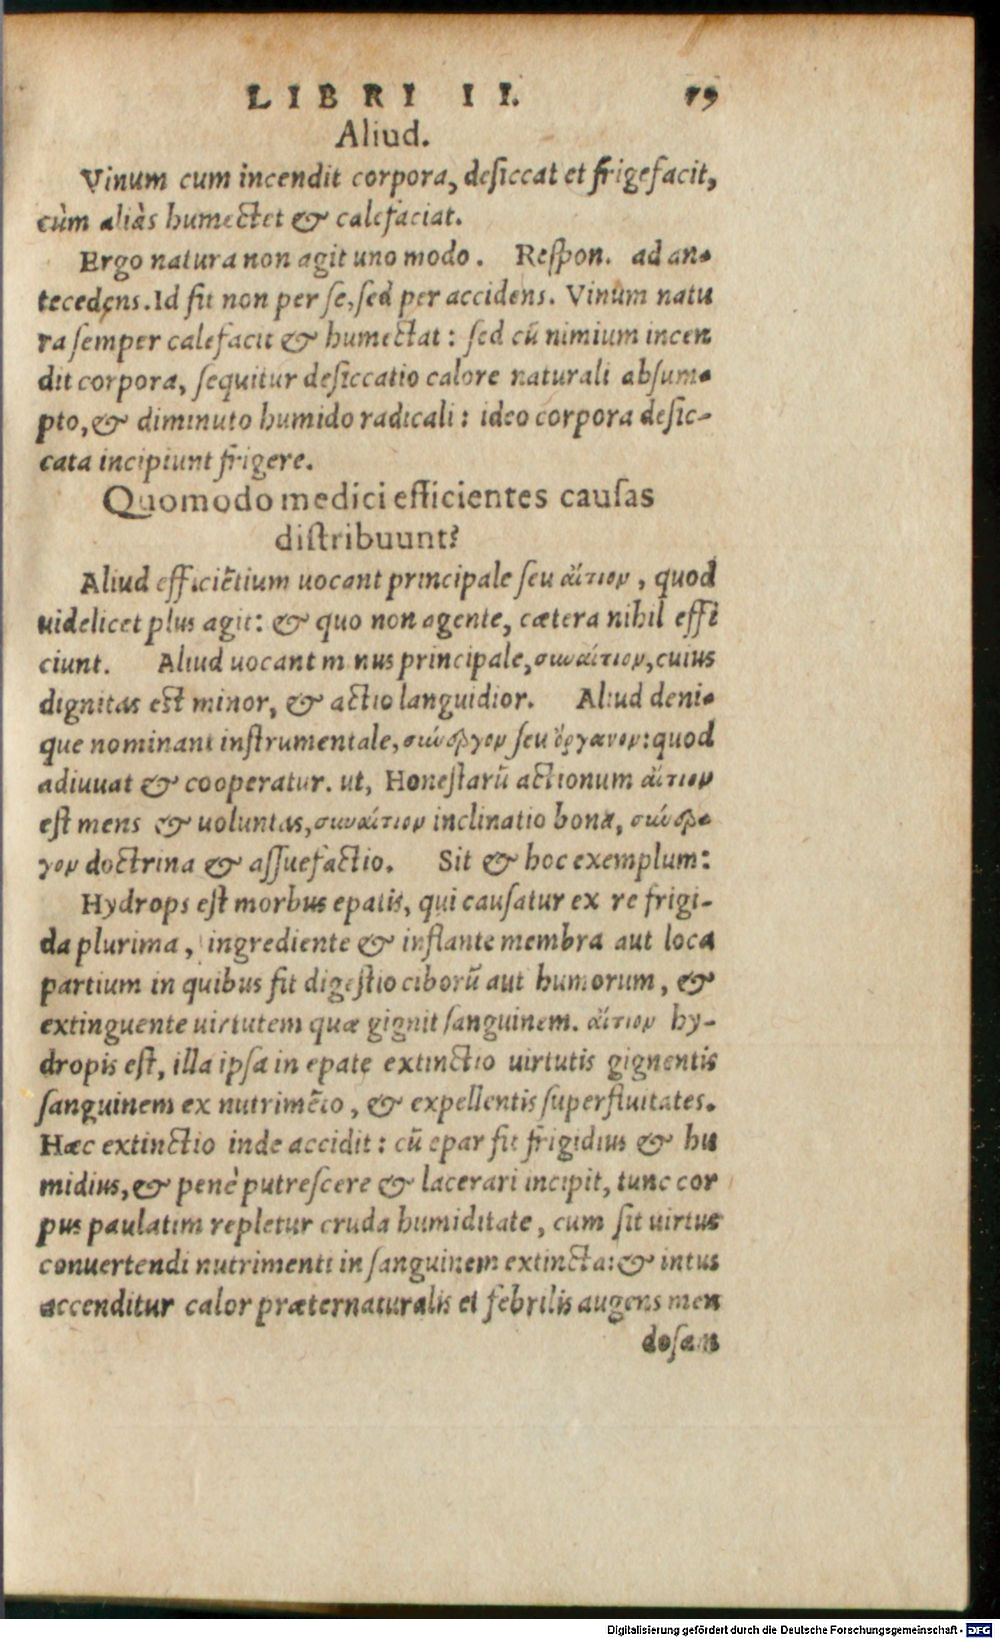 LIBRI II. 79
Aliud.
Vinum cum incendit corpora, desiccat et frigefacit,
cùm aliàs humectet & calefaciat.
Ergo natura non agit uno modo. Respon. ad an-
tecedens. Id fit non per se, sed per accidens. Vinum natu
ra semper calefacit & humectat: sed cū nimium incen
dit corpora, sequitur desiccatio calore naturali absum-
pto, & diminuto humido radicali: ideo corpora desic-
cata incipiunt frigere.
Quomodo medici efficientes causas
distribuunt?
Aliud efficiētium uocant principale seu αἴτιον, quod
uidelicet plus agit: & quo non agente, cætera nihil effi
ciunt. Aliud uocant minus principale, συναίτιον, cuius
dignitas est minor, & actio languidior. Aliud deni-
que nominant instrumentale, σύνεργον seu ὄργανον: quod
adiuuat & cooperatur. ut, Honestarū actionum αἴτιον
est mens & uoluntas, συναίτιον inclinatio bona, σύνερ-
γον doctrina & assuefactio. Sit & hoc exemplum:
Hydrops est morbus epatis, qui causatur ex re frigi-
da plurima, ingrediente & inflante membra aut loca
partium in quibus fit digestio ciborū aut humorum, &
extinguente uirtutem quæ gignit sanguinem. αἴτιον hy-
dropis est, illa ipsa in epate extinctio uirtutis gignentis
sanguinem ex nutrimēto, & expellentis superfluitates.
Hæc extinctio inde accidit: cū epar fit frigidius & hu
midius, & penè putrescere & lacerari incipit, tunc cor
pus paulatim repletur cruda humiditate, cum sit uirtus
conuertendi nutrimenti in sanguinem extincta: & intus
accenditur calor præternaturalis et febrilis augens men
dosam
Digitalisierung gefördert durch die Deutsche Forschungsgemeinschaft - DFG